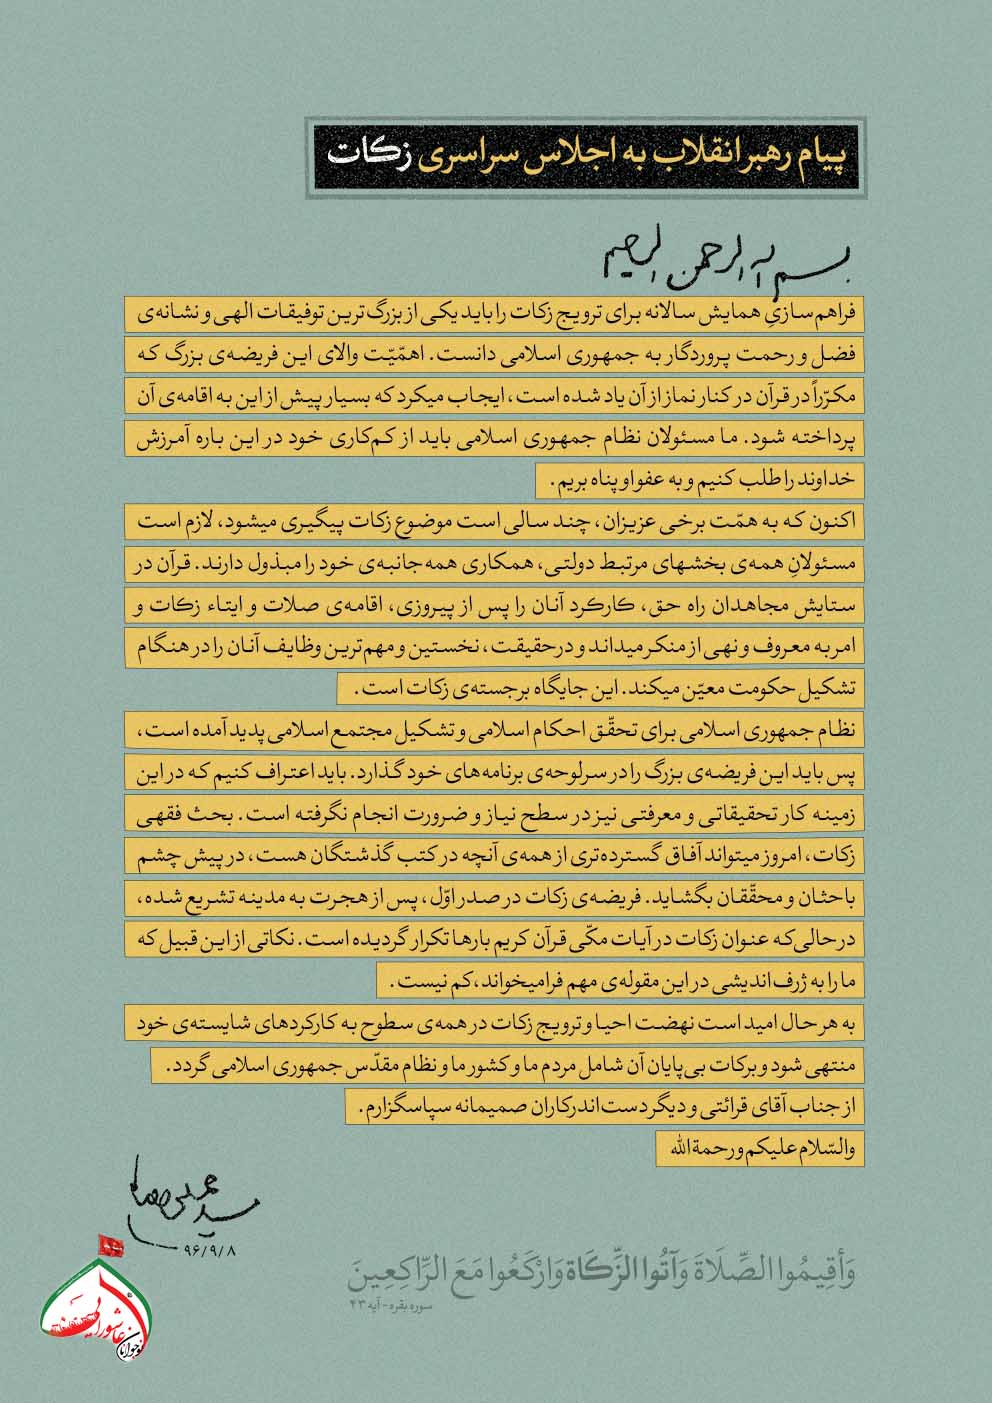 پیام رهبر انقلاب به اجلاس سراسری زکات
بسم الله الرحمن الرحیم
فراهم‌سازیِ همایش سالانه برای ترویج زکات را باید یکی از بزرگ‌ترین توفیقات الهی و نشانه‌ی
فضل و رحمت پروردگار به جمهوری اسلامی دانست. اهمّیّت والای این فریضه‌ی بزرگ که
مکرّراً در قرآن در کنار نماز از آن یاد شده است، ایجاب میکرد که بسیار پیش از این به اقامه‌ی آن
پرداخته شود. ما مسئولان نظام جمهوری اسلامی باید از کم‌کاری خود در این باره آمرزش
خداوند را طلب کنیم و به عفو او پناه بریم.
اکنون که به همّت برخی عزیزان، چند سالی است موضوع زکات پیگیری میشود، لازم است
مسئولانِ همه‌ی بخشهای مرتبط دولتی، همکاری همه جانبه‌ی خود را مبذول دارند. قرآن در
ستایش مجاهدان راه حق، کارکرد آنان را پس از پیروزی، اقامه‌ی صلات و ایتاء زکات و
امر به معروف و نهی از منکر میداند و درحقیقت، نخستین و مهم‌ترین وظایف آنان را در هنگام
تشکیل حکومت معیّن میکند. این جایگاه برجسته‌ی زکات است.
نظام جمهوری اسلامی برای تحقّق احکام اسلامی و تشکیل مجتمع اسلامی پدید آمده است،
پس باید این فریضه‌ی بزرگ را در سرلوحه‌ی برنامه‌های خود گذارد. باید اعتراف کنیم که در این
زمینه کار تحقیقاتی و معرفتی نیز در سطح نیاز و ضرورت انجام نگرفته است. بحث فقهی
زکات، امروز میتواند آفاق گسترده‌تری از همه‌ی آنچه در کتب گذشتگان هست، در پیش چشم
باحثان و محقّقان بگشاید. فریضه‌ی زکات در صدر اوّل، پس از هجرت به مدینه تشریع شده،
درحالی‌که عنوان زکات در آیات مکّی قرآن کریم بارها تکرار گردیده است. نکاتی از این قبیل که
ما را به ژرف‌اندیشی در این مقوله‌ی مهم فرامیخواند، کم نیست.
به هر حال امید است نهضت احیا و ترویج زکات در همه‌ی سطوح به کارکردهای شایسته‌ی خود
منتهی شود و برکات بی‌پایان آن شامل مردم ما و کشور ما و نظام مقدّس جمهوری اسلامی گردد.
از جناب آقای قرائتی و دیگر دست‌اندرکاران صمیمانه سپاسگزارم.
والسّلام علیکم و رحمة‌الله
سید علی خامنه‌ای
۹۶/۹/۸
وَأَقِيمُوا الصَّلَاةَ وَآتُوا الزَّكَاةَ وَارْكَعُوا مَعَ الرَّاكِعِينَ
سوره بقره - آیه ۴۳
نوجوانان عاشورایی